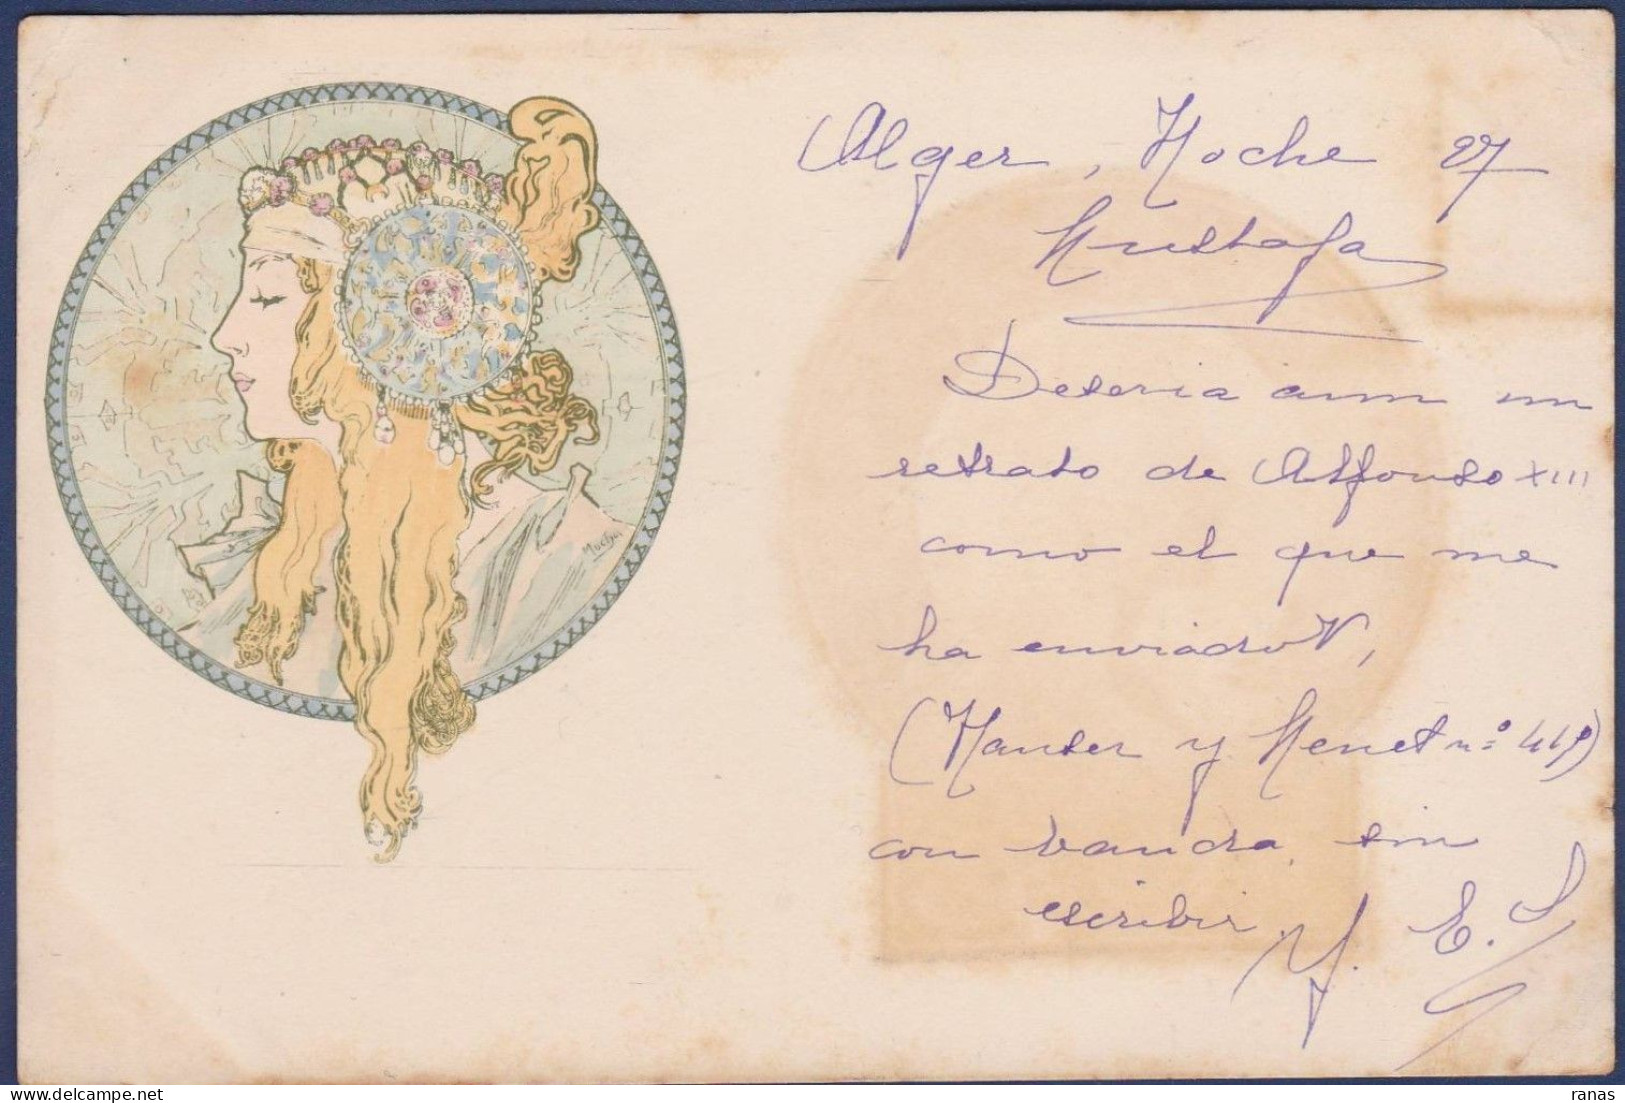 Mucha
Alger, Hoche 27
Mustafa
Deseria aun un
retrato de Alfonso XIII
como el que me
ha enviado V,
(Hauser y Menet nº 419)
con vandra, sin
escribir.
Y. E. S
ranas